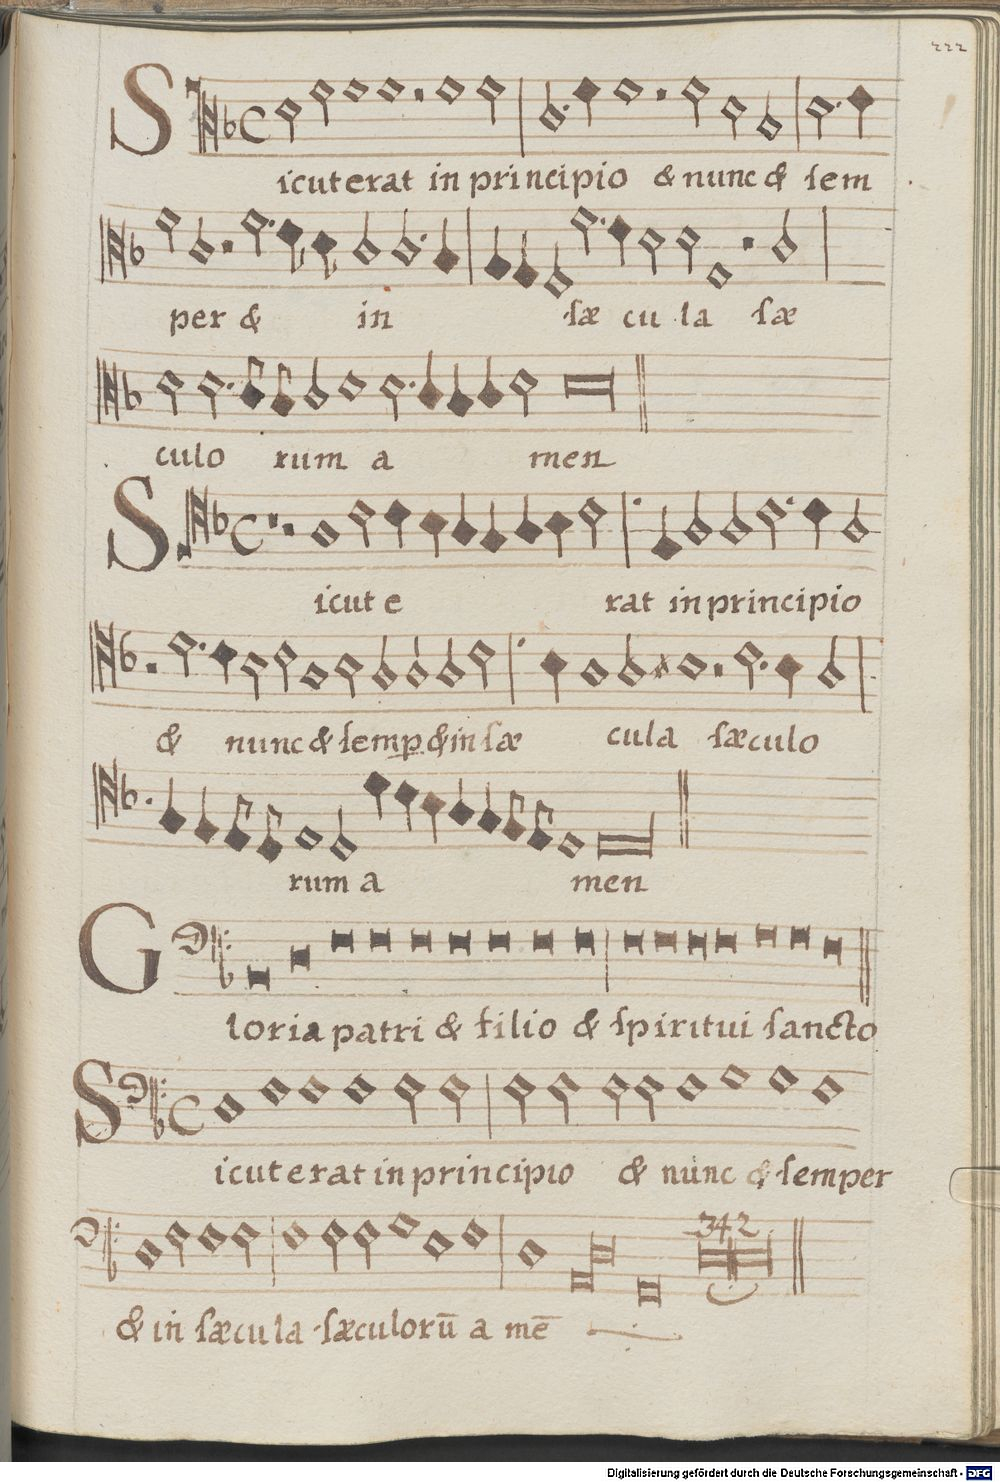 222
Sicut erat in principio & nunc & sem
per & in sæ cu la sæ
culo rum a men
Sicut e rat in principio
& nunc & semp & in sæ cula sæculo
rum a men
Gloria patri & filio & spiritui sancto
Sicut erat in principio & nunc & semper
342
& in sæcula sæculorū a mē
Digitalisierung gefördert durch die Deutsche Forschungsgemeinschaft - DFG